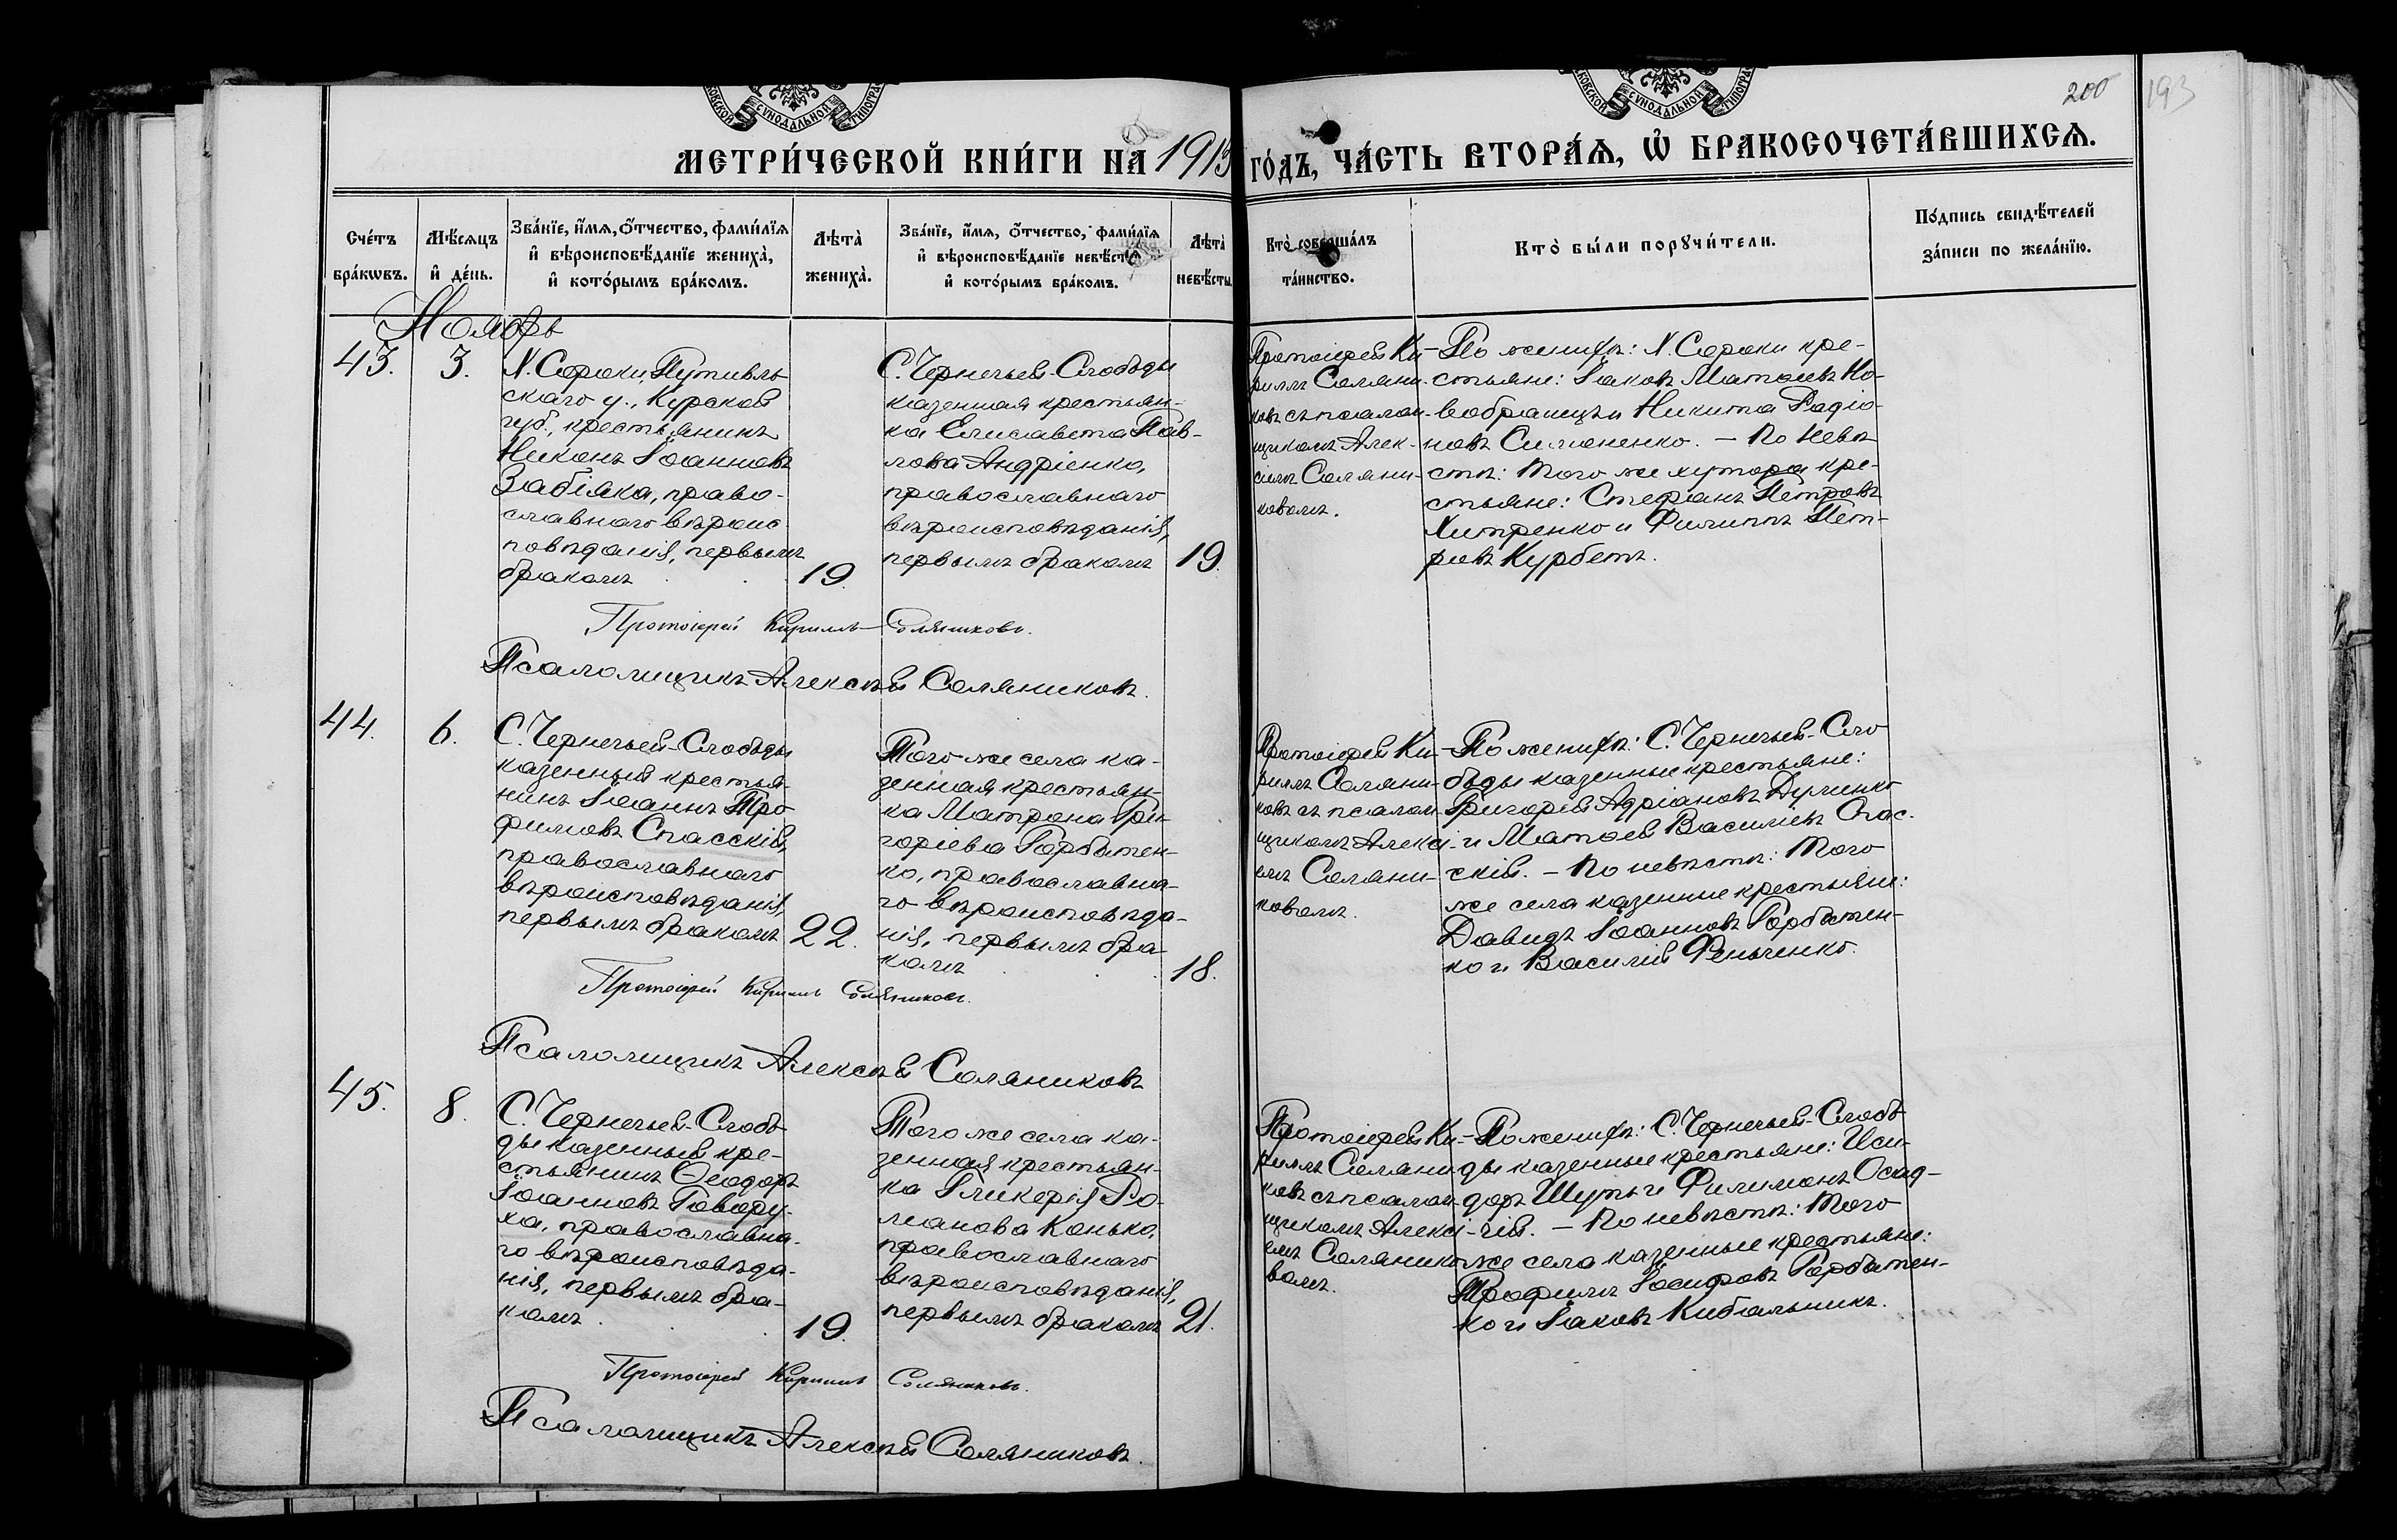 200 193
МЕТРИ́ЧЕСКОЙ КНИ́ГИ НА 1913 ГО́ДЪ, ЧА́СТЬ ВТОРА́Ѧ, Ѡ҆ БРАКОСОЧЕТА́ВШИХСѦ.
Сче́тъ бра́кѡвъ.
Мѣ́сѧцъ и҆ де́нь.
Зва́нїе, и҆́мѧ, ѻ҆́тчество, фами́лїѧ и҆ вѣроисповѣ́данїе жениха̀, и҆ кото́рымъ бра́комъ.
Лѣта̀ жениха̀.
Зва́нїе, и҆́мѧ, ѻ҆́тчество, фами́лїѧ и҆ вѣроисповѣ́данїе невѣ́сты и҆ кото́рымъ бра́комъ.
Лѣта̀ невѣ́сты
Кто̀ соверша́лъ та́инство.
Кто̀ бы́ли порꙋчи́тели.
По́дпись свидѣ́телей за́писи по жела́нїю.
Ноябрь
43.
3.
Х. Сороки, Путивль-
скаго у., Курской
губ., крестьянинъ
Никонъ Іоанновъ
Забіяка, право-
славнаго вѣроис-
повѣданія, первымъ
бракомъ
19.
С. Чернечьей-Слободы
казенная крестьян-
ка Елисавета Пав-
лова Андріенко,
православнаго
вѣроисповѣданія,
первымъ бракомъ
19.
Протоіерей Ки-
риллъ Соляни-
ковъ съ псалом-
щикомъ Алек-
сіемъ Соляни-
ковымъ.
По женихѣ: Х. Сороки кре-
стьяне: Іаковъ Матѳіевъ Но-
вобранецъ и Никита Радіо-
новъ Симоненко. — По невѣ-
стѣ: того же хутора кре-
стьяне: Стефанъ Петровъ
Хитренко и Филиппъ Пет-
ровъ Курбетъ.
Протоіерей Кириллъ Соляниковъ.
Псаломщикъ Алексѣй Соляниковъ.
44.
6.
С. Чернечьей-Слободы
казенный крестья-
нинъ Іоаннъ Тро-
фимовъ Спасскій,
православнаго
вѣроисповѣданія,
первымъ бракомъ
22.
Того же села ка-
зенная крестьян-
ка Матрона Гри-
горіева Горбатен-
ко, православна-
го вѣроисповѣда-
нія, первымъ бра-
комъ
18.
Протоіерей Ки-
риллъ Соляни-
ковъ съ псалом-
щикомъ Алексі-
емъ Соляни-
ковымъ.
По женихѣ: С. Чернечьей-Сло-
боды казенные крестьяне:
Григорій Адріановъ
и Матѳей Василіевъ Спас-
скій. — По невѣстѣ: того
же села казенные крестьяне:
Давидъ Іоанновъ Горбатен-
ко и Василій Фенченко.
Протоіерей Кириллъ Соляниковъ.
Псаломщикъ Алексѣй Соляниковъ
45.
8.
С. Чернечьей-Слобо-
ды казенный кре-
стьянинъ Ѳеодоръ
Іоанновъ Говору-
ха, православна-
го вѣроисповѣда-
нія, первымъ бра-
комъ
19.
Того же села ка-
зенная крестьян-
ка Гликерія Ро-
манова Конько,
православнаго
вѣроисповѣданія,
первымъ бракомъ
21.
Протоіерей Ки-
риллъ Соляни-
ковъ съ псалом-
щикомъ Алексі-
емъ Солянико-
вымъ.
По женихѣ: С. Чернечьей-Слобо-
ды казенные крестьяне: Иси-
доръ Шуть и Филимонъ Осад-
чій. — По невѣстѣ: того
же села казенные крестьяне:
Трофимъ Іосифовъ Горбатен-
ко и Іаковъ Кибальникъ.
Протоіерей Кириллъ Соляниковъ.
Псаломщикъ Алексѣй Соляниковъ.